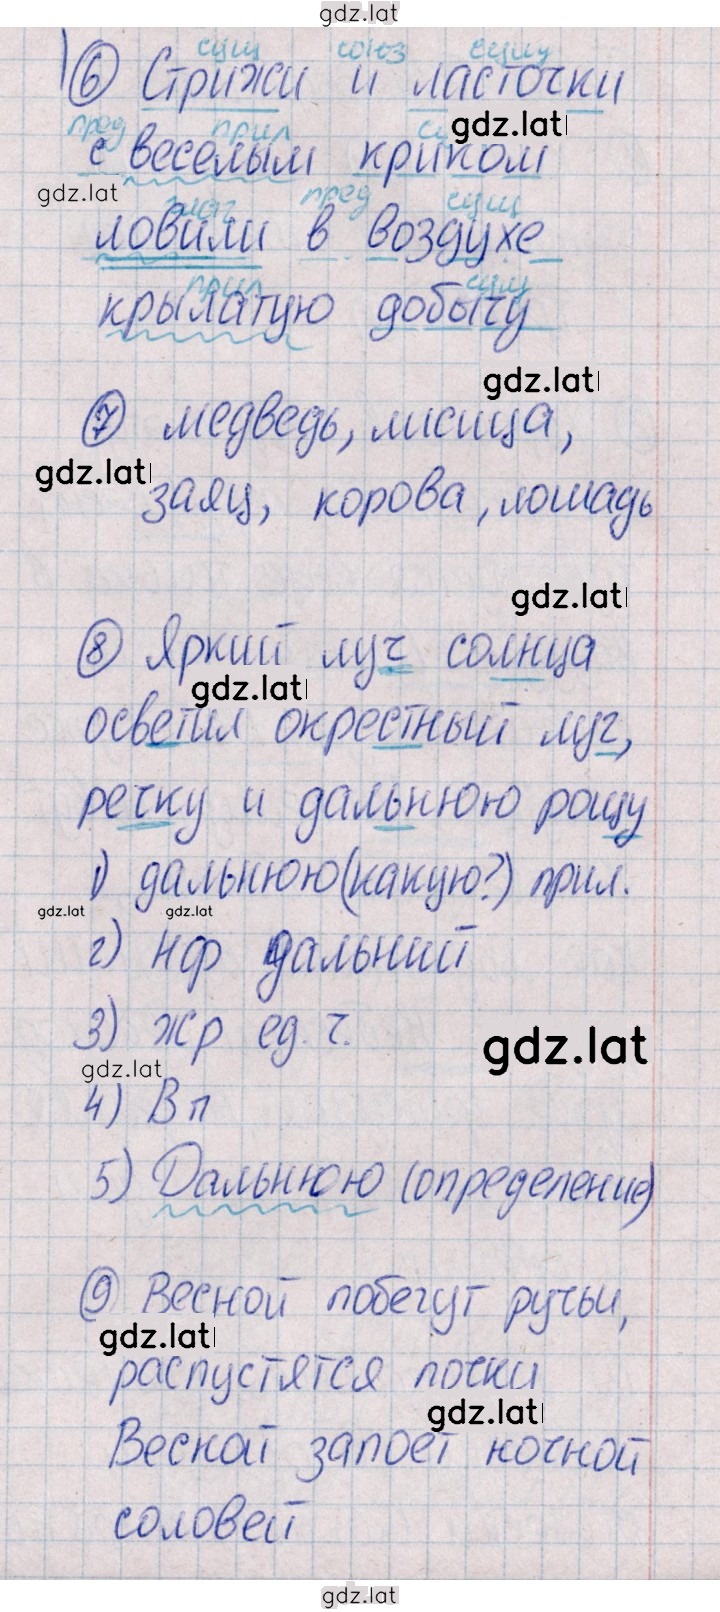 gdz.lat
сущ союз сущ
6 Стрижи и ласточки
пред прил gdz.lat
с веселым криком
gdz.lat пред сущ
ловили в воздухе
прил сущ
крылатую добычу
gdz.lat
7 медведь, лисица,
gdz.lat
заяц, корова, лошадь
gdz.lat
8 Яркий луч солнца
gdz.lat
осветил окрестный луг,
речку и дальнюю рощу
1) дальнюю (какую?) прил.
gdz.lat gdz.lat
2) нф дальний
3) жр ед. ч.
gdz.lat gdz.lat
4) Вп
5) Дальнюю (определение)
9 Весной побегут ручьи,
gdz.lat
распустятся почки
gdz.lat
Весной запоет ночной
соловей
gdz.lat